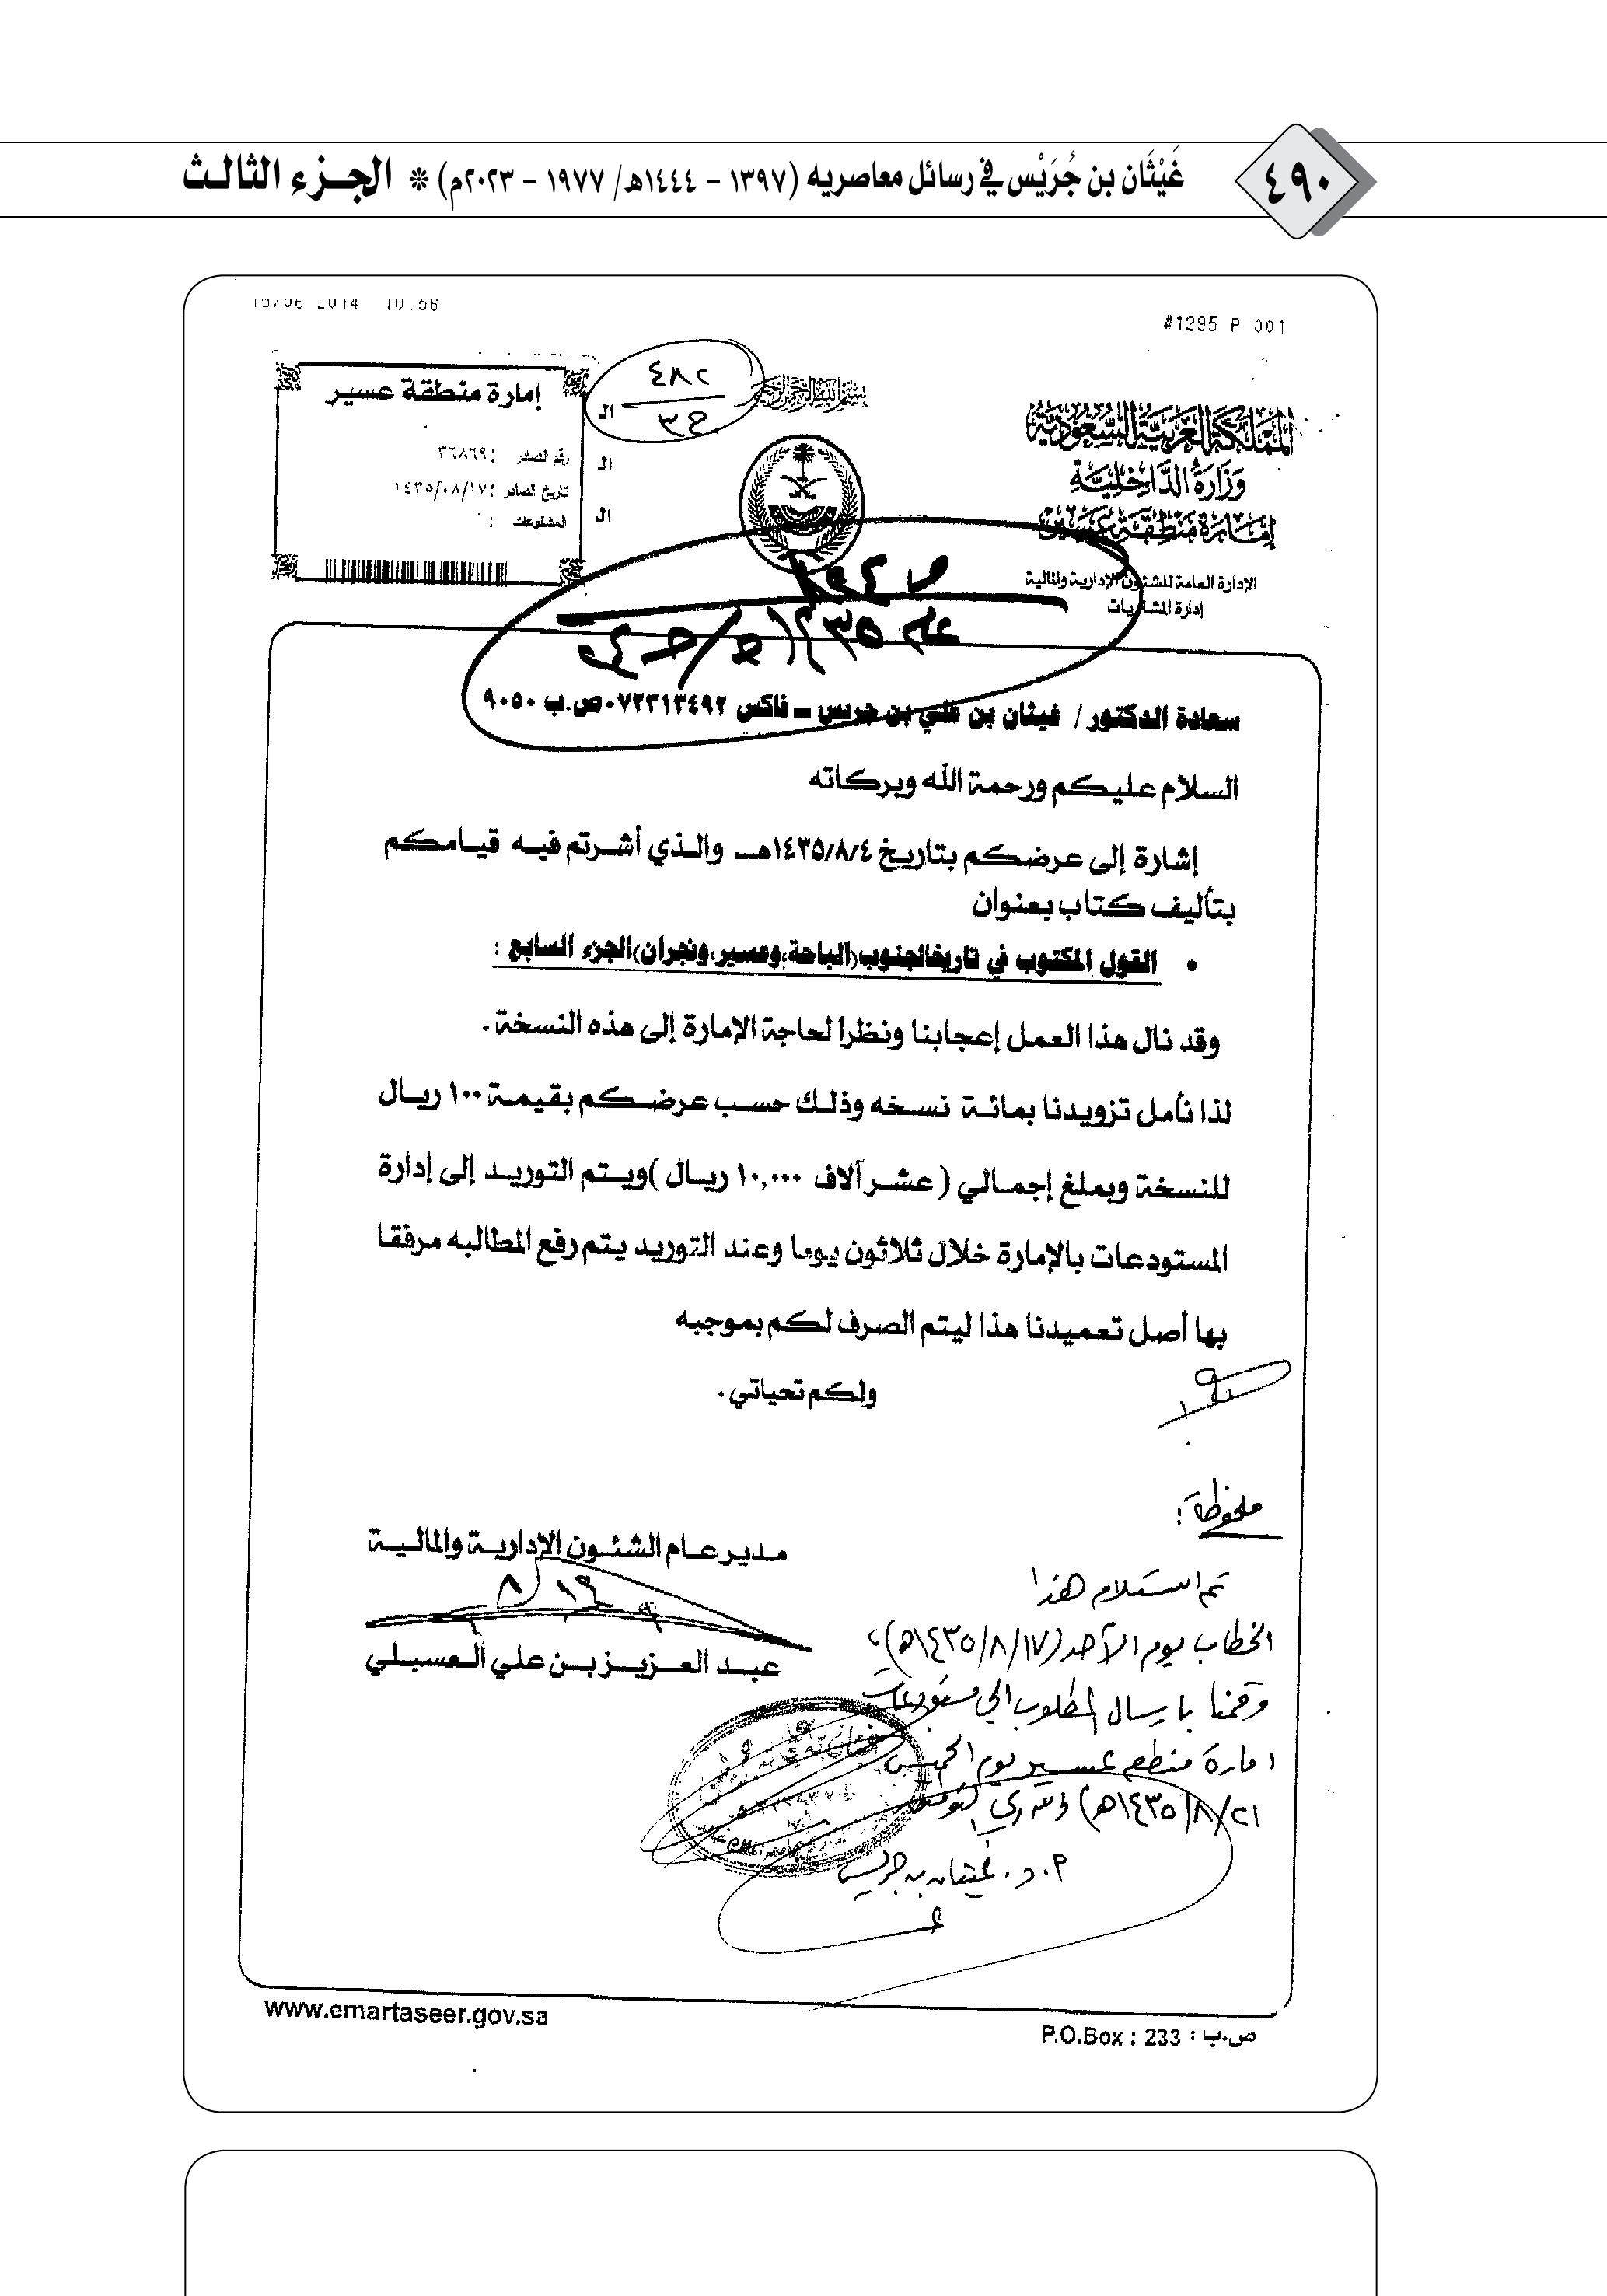 ٤٩٠
غَيْثَان بن جُرَيْس في رسائل معاصريه (١٣٩٧ - ١٤٤٤هـ / ١٩٧٧ - ٢٠٢٣م) * الجزء الثالث
15/06 2014 10:56
#1295 P 001
٤٨٢
ج٣
بسم الله الرحمن الرحيم
المملكة العربية السعودية
وزارة الداخلية
إمارة منطقة عسير
الإدارة العامة للشئون الإدارية والمالية
إدارة المشتريات
إمارة منطقة عسير
رقم الصادر : ٣٦٨٦٩
تاريخ الصادر : ١٤٣٥/٠٨/١٧
المشفوعات :
الـ
الـ
الـ
سعادة الدكتور / غيثان بن علي بن جريس ــ فاكس ٠٧٢٣١٣٤٩٢ ص.ب ٩٠٥٠
السلام عليكم ورحمة الله وبركاته
إشارة إلى عرضكم بتاريخ ١٤٣٥/٨/٤هـ والذي أشرتم فيه قيامكم
بتأليف كتاب بعنوان
• القول المكتوب في تاريخ الجنوب (الباحة، وعسير، ونجران) الجزء السابع :
وقد نال هذا العمل إعجابنا ونظرا لحاجة الإمارة إلى هذه النسخة .
لذا نأمل تزويدنا بمائة نسخه وذلك حسب عرضكم بقيمة ١٠٠ ريال
للنسخة وبملغ إجمالي ( عشر آلاف ١٠,٠٠٠ ريال ) ويتم التوريد إلى إدارة
المستودعات بالإمارة خلال ثلاثون يوما وعند التوريد يتم رفع المطالبه مرفقا
بها أصل تعميدنا هذا ليتم الصرف لكم بموجبه
ولكم تحياتي .
مدير عام الشئون الإدارية والمالية
٨/١٩
عبد العزيز بن علي العسبلي
ملحوظة :
تم استلام هذا
الخطاب يوم الأحد (١٤٣٥/٨/١٧هـ)،
وقمنا بإرسال المطلوب إلى مستودعات
امارة منطقة عسير يوم الخميس
٢١/٨/١٤٣٥هـ) والله ولي التوفيق
أ.د. غيثان بن جريس
www.emartaseer.gov.sa
P.O.Box : 233 : ص.ب